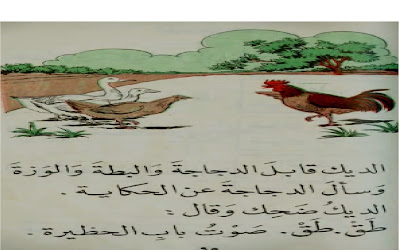 الديك قابل الدجاجةَ وَالبطةَ وَالوزةَ
وَسأَلَ الدجاجةَ عن الحكاية .
الديكُ ضَحِك وَقال :
طَقْ . طَقْ . صَوْتُ بابِ الحظيرةِ .